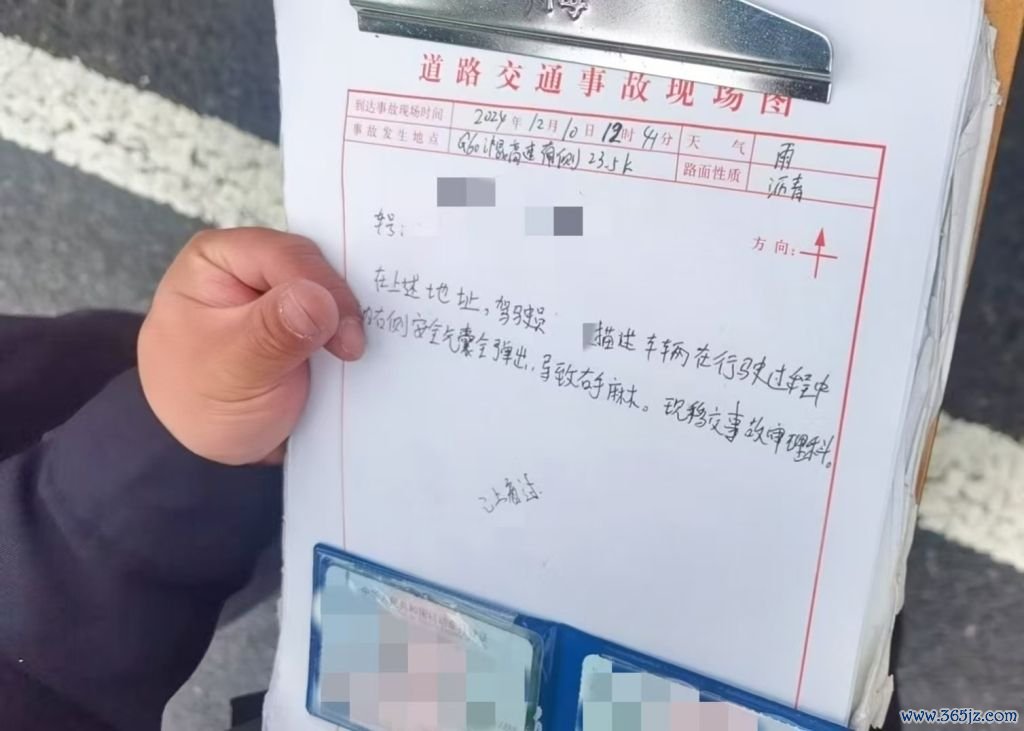 道路交通事故现场图
到达事故现场时间 2024年12月10日12时41分 天气 雨
事故发生地点 G60沪昆高速南侧23.5K 路面性质 沥青
方向:
车号:
在上述地址,驾驶员 描述车辆在行驶过程中
右侧安全气囊全弹出,导致右手麻木。现移交事故审理科。
已上看过
中华人民共和国机动车
www.365jz.com